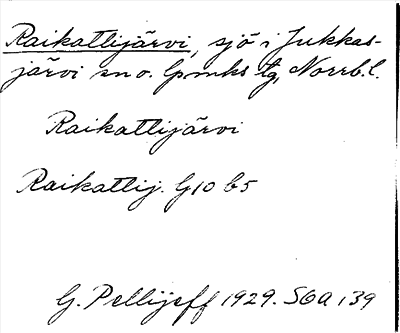 Raikattijärvi, sjö i Jukkas-
järvi sn o. lpmks tg, Norrb. l.
Raikattijärvi
Raikattij. G10 b5
G. Pellijeff 1929. SOA 139